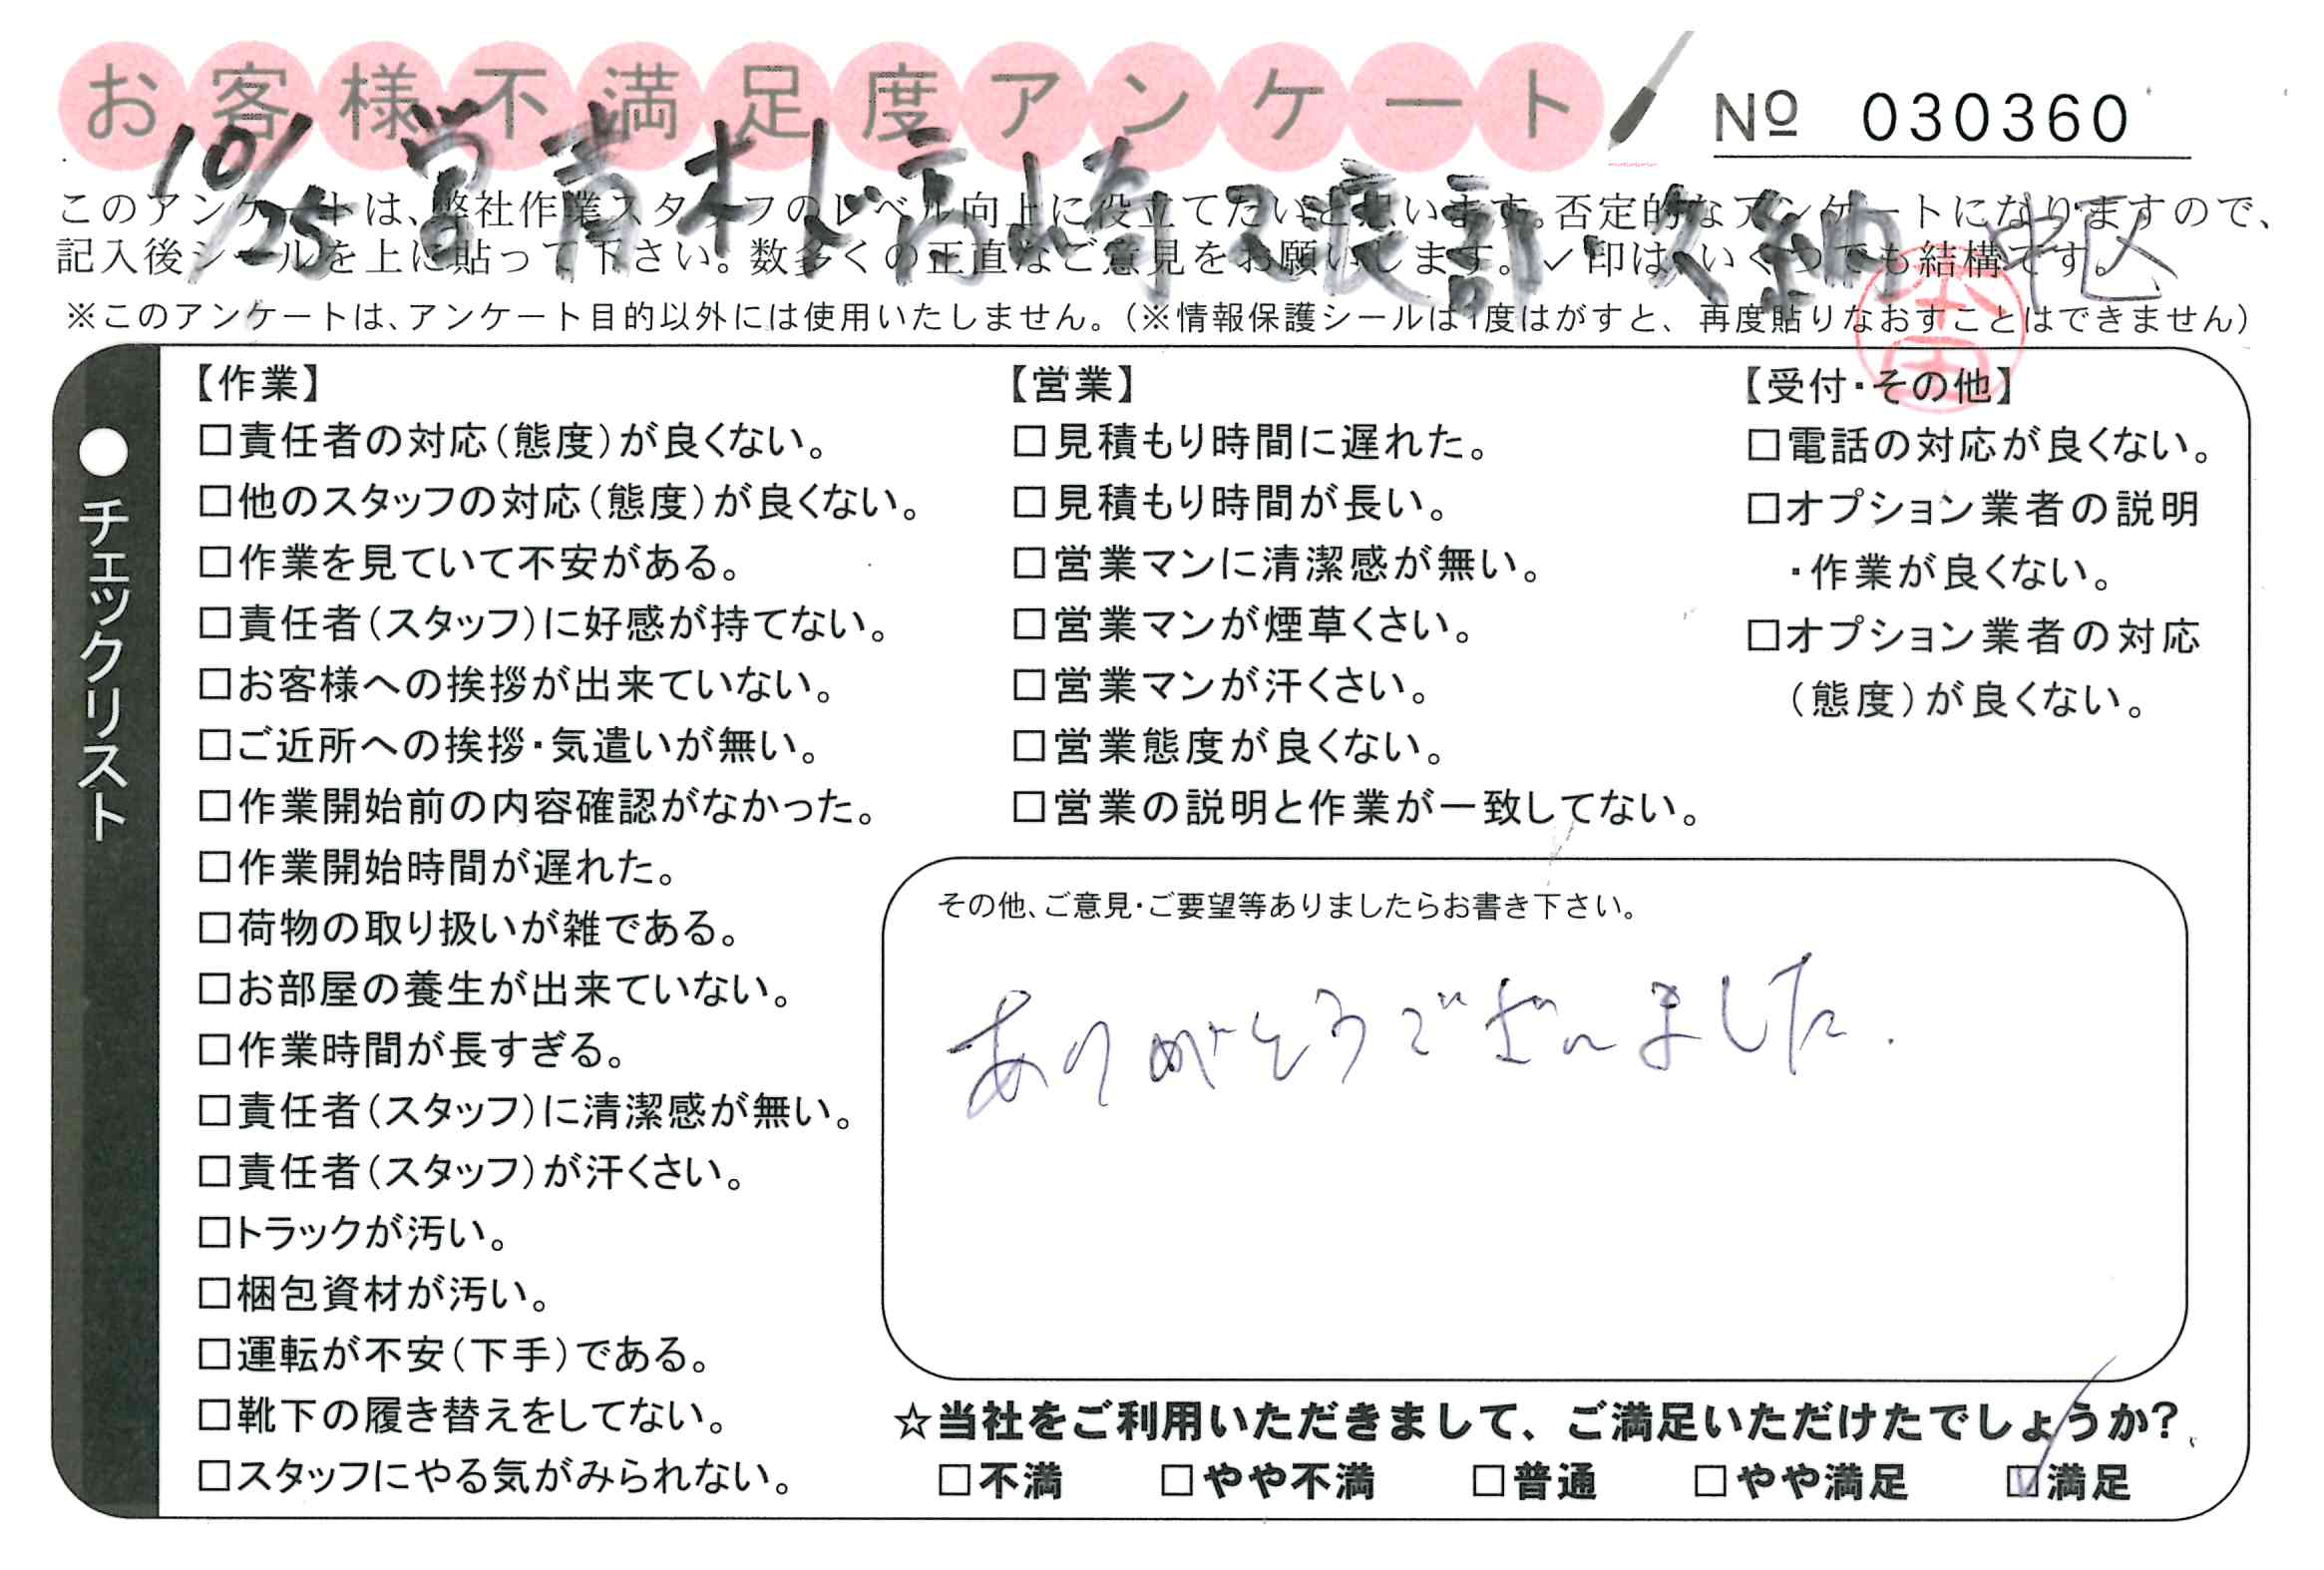 お客様不満足度アンケート
№ 030360
10/25 営 青木 ド 高崎 ス 渡部
このアンケートは、弊社作業スタッフのレベル向上に役立てたいと思います。否定的なアンケートになりますので、
記入後シールを上に貼って下さい。数多くの正直なご意見をお願いします。✓印はいくつでも結構です。
※このアンケートは、アンケート目的以外には使用いたしません。(※情報保護シールは1度はがすと、再度貼りなおすことはできません)
●チェックリスト
【作業】
□責任者の対応(態度)が良くない。
□他のスタッフの対応(態度)が良くない。
□作業を見ていて不安がある。
□責任者(スタッフ)に好感が持てない。
□お客様への挨拶が出来ていない。
□ご近所への挨拶・気遣いが無い。
□作業開始前の内容確認がなかった。
□作業開始時間が遅れた。
□荷物の取り扱いが雑である。
□お部屋の養生が出来ていない。
□作業時間が長すぎる。
□責任者(スタッフ)に清潔感が無い。
□責任者(スタッフ)が汗くさい。
□トラックが汚い。
□梱包資材が汚い。
□運転が不安(下手)である。
□靴下の履き替えをしてない。
□スタッフにやる気がみられない。
【営業】
□見積もり時間に遅れた。
□見積もり時間が長い。
□営業マンに清潔感が無い。
□営業マンが煙草くさい。
□営業マンが汗くさい。
□営業態度が良くない。
□営業の説明と作業が一致してない。
【受付・その他】
□電話の対応が良くない。
□オプション業者の説明
・作業が良くない。
□オプション業者の対応
(態度)が良くない。
その他、ご意見・ご要望等ありましたらお書き下さい。
ありがとうございました.
☆当社をご利用いただきまして、ご満足いただけたでしょうか?
□不満 □やや不満 □普通 □やや満足 ☑満足